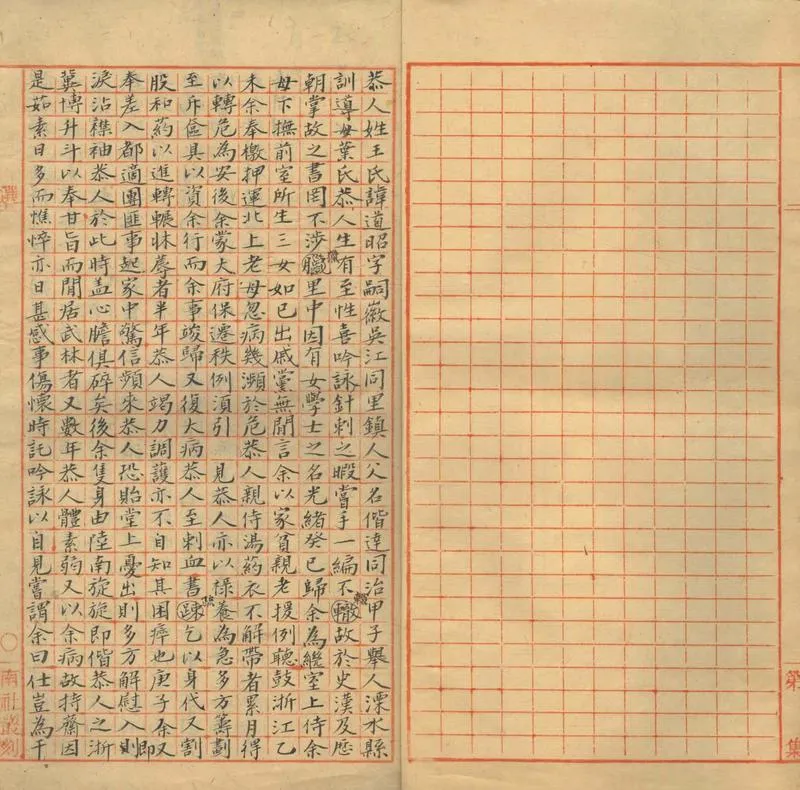 恭人姓王氏諱道昭字嗣徽吳江同里鎮人父名偕達同治甲子舉人溧水縣
訓導母葉氏恭人生有至性喜吟詠針刺之暇嘗手一編不轍輟故於史漢及歷
朝掌故之書罔不涉臘獵里中因有女學士之名光緒癸巳歸余為繼室上侍余
母下撫前室所生三女如已出戚黨無閒言余以家貧親老援例聽鼓浙江乙
未余奉檄押運北上老母忽病幾瀕於危恭人親侍湯藥衣不解帶者累月得
以轉危為安後余蒙大府保遷秩例須引 見恭人亦以祿養為急多方籌劃
至斥奩具以資余行而余事竣歸又復大病恭人至刺血書踈疏乞以身代又割
股和藥以進轉輾牀蓐者半年恭人竭力調護亦不自知其困瘁也庚子余又
奉差入都適團匪事起家中驚信頻來恭人恐貽堂上憂出則多方解慰入則即
淚沾襟袖恭人於此時盖心膽俱碎矣後余隻身由陸南旋旋即偕恭人之浙
冀博升斗以奉甘旨而閒居武林者又數年恭人體素弱又以余病故持齋因
是茹素日多而憔悴亦日甚感事傷懷時託吟詠以自見嘗謂余曰仕豈為干
選
南社叢刻
第
集